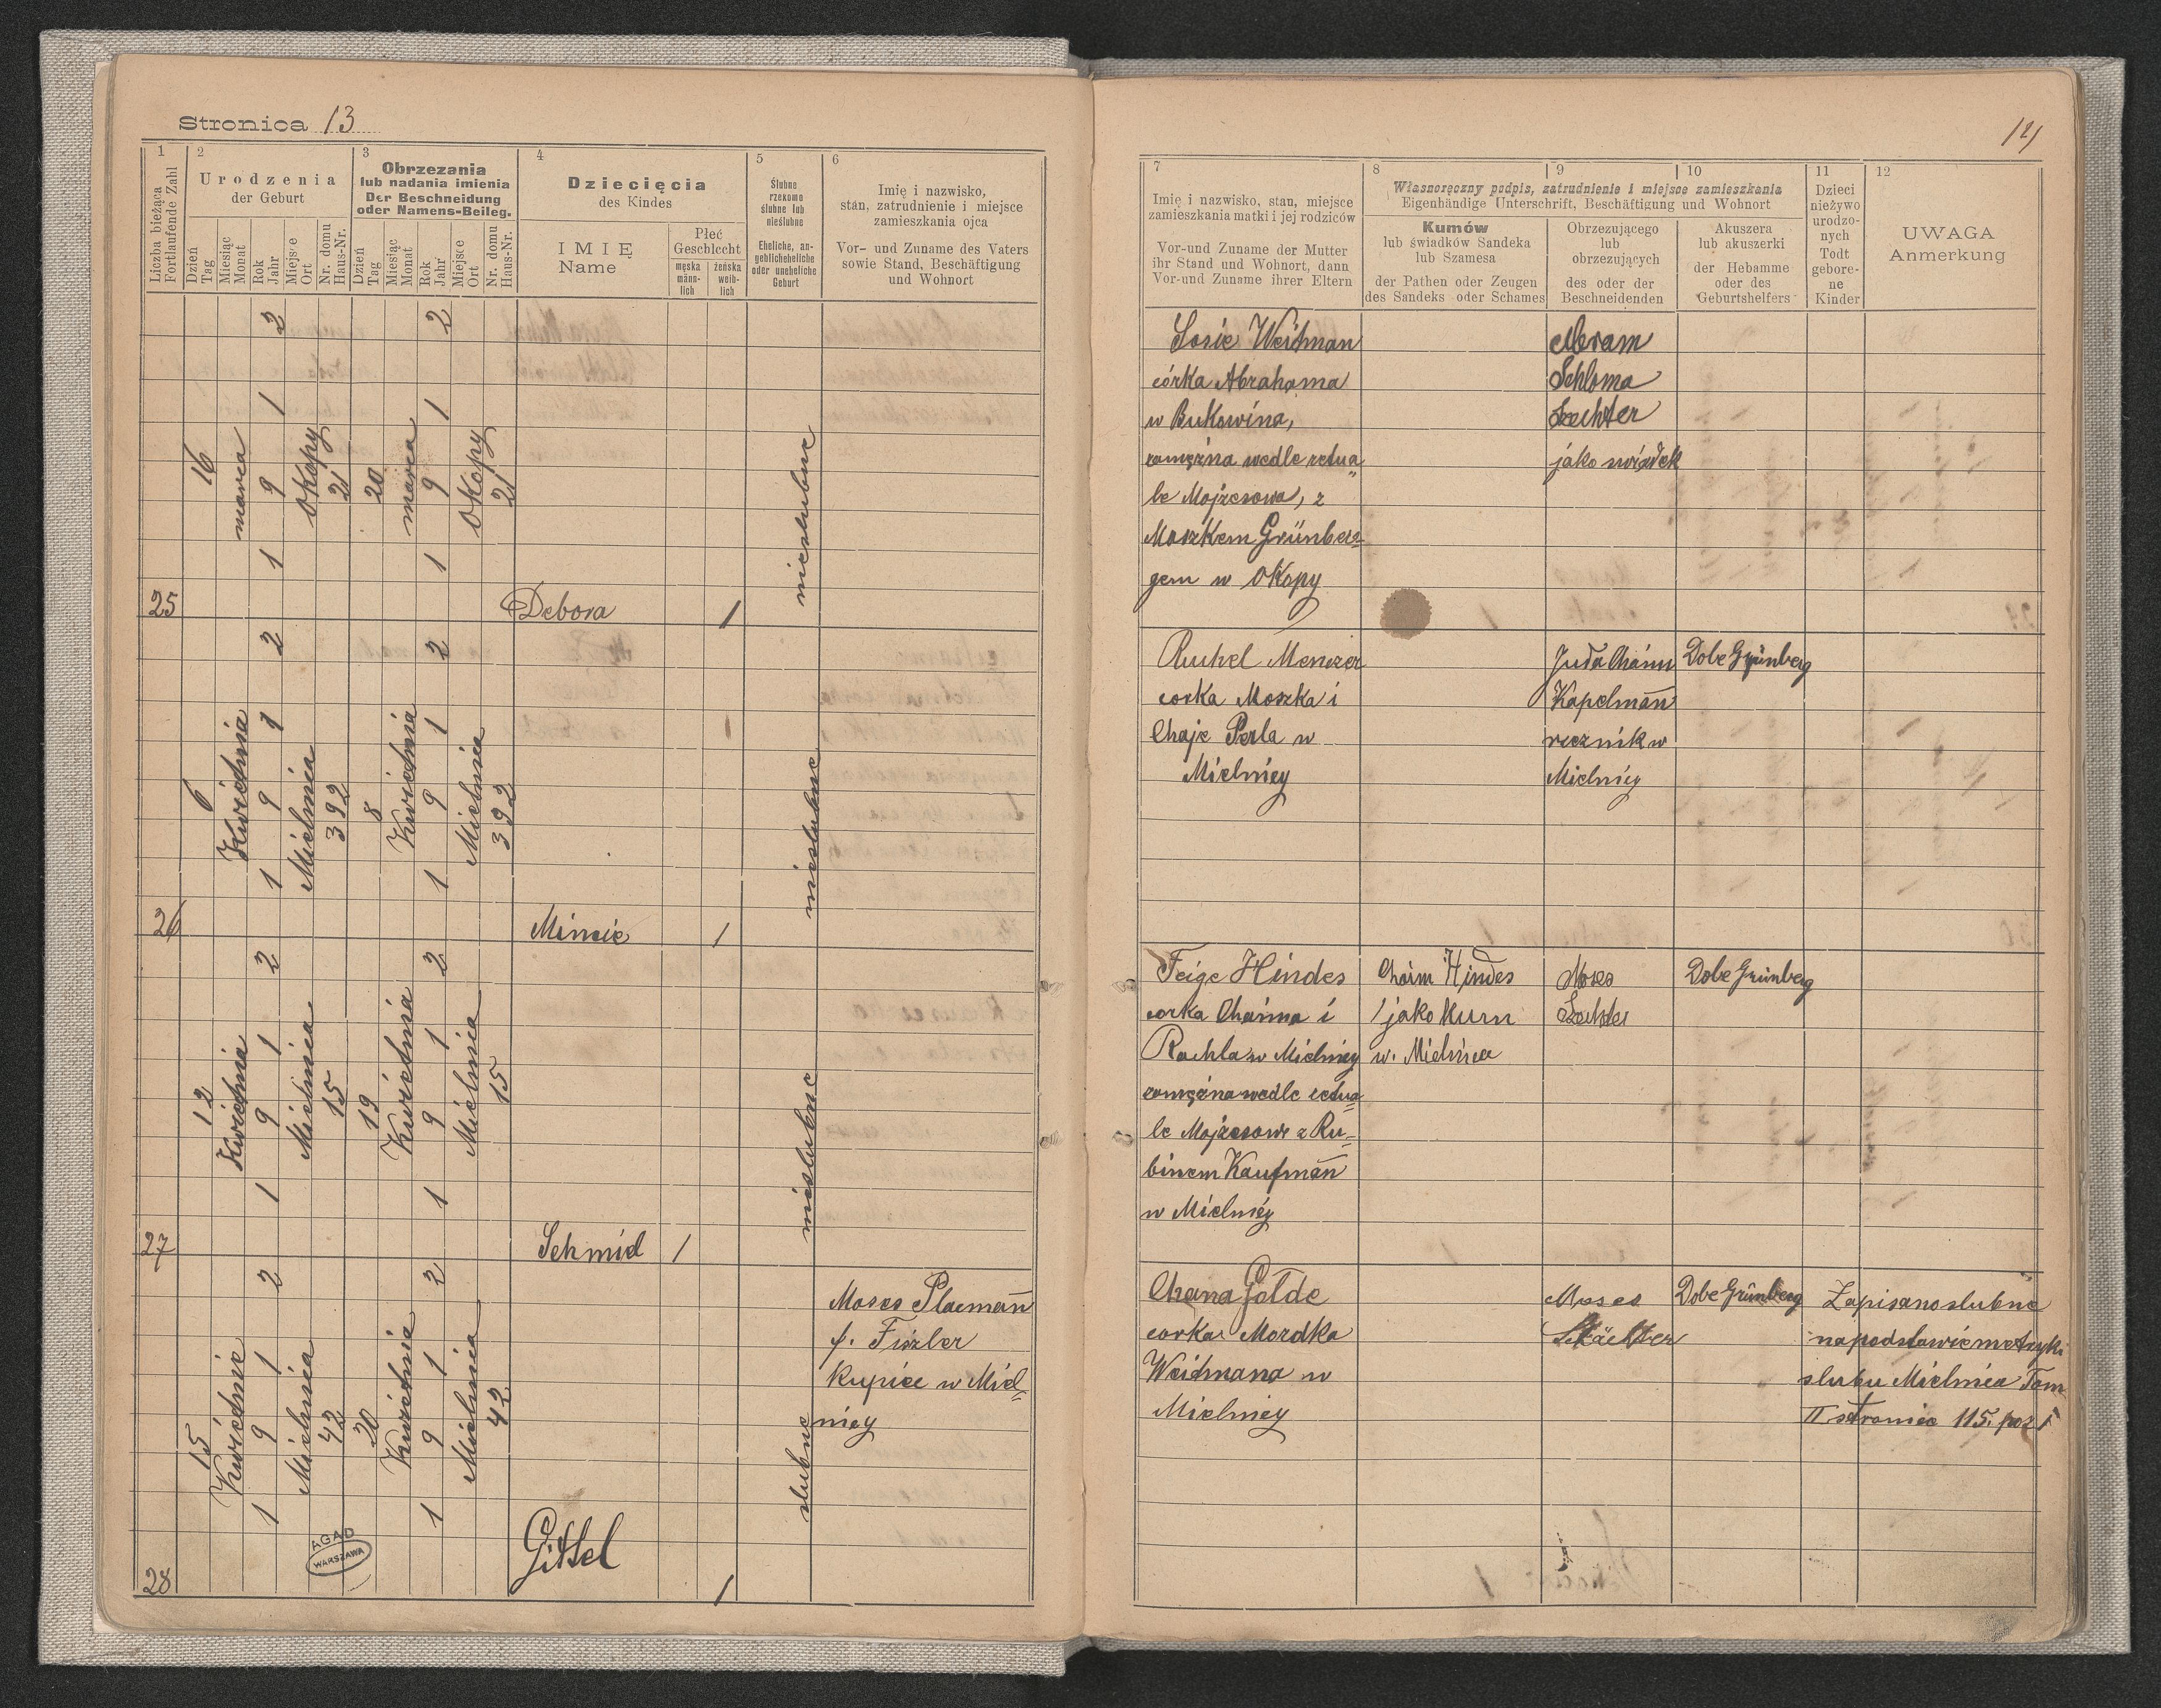 Stronica 13
1
Liczba bieżąca
Fortlaufende Zahl
2
Urodzenia
der Geburt
Dzień
Tag
Miesiąc
Monat
Rok
Jahr
Miejsce
Ort
Nr. domu
Haus-Nr.
3
Obrzezania
lub nadania imienia
Der Beschneidung
oder Namens-Beileg.
Dzień
Tag
Miesiąc
Monat
Rok
Jahr
Miejsce
Ort
Nr. domu
Haus-Nr.
4
Dziecięcia
des Kindes
IMIĘ
Name
Płeć
Geschlecht
męska
männ-
lich
żeńska
weib-
lich
5
Ślubne
rzekomo
ślubne lub
nieślubne
Eheliche, an-
geblicheheliche
oder uneheliche
Geburt
6
Imię i nazwisko,
stan, zatrudnienie i miejsce
zamieszkania ojca
Vor- und Zuname des Vaters
sowie Stand, Beschäftigung
und Wohnort
25
16
marca
1 9 1 2
Okopy
21
20
marca
1 9 1 2
Okopy
21
Debora
1
nieslubne
26
6
Kwietnia
1 9 1 2
Mielnica
392
8
Kwietnia
1 9 1 2
Mielnica
392
Mincie
1
nieslubne
27
12
Kwietnia
1 9 1 2
Mielnica
15
19
Kwietnia
1 9 1 2
Mielnica
15
Schmid
1
nieslubne
28
15
Kwietnia
1 9 1 2
Mielnica
42
20
Kwietnia
1 9 1 2
Mielnica
42
Gittel
1
slubne
Moses Placmann
f. Fiszler
kupiec w Miel=
nicy
AGAD
WARSZAWA
7
Imię i nazwisko, stan, miejsce
zamieszkania matki i jej rodziców
Vor-und Zuname der Mutter
ihr Stand und Wohnort, dann
Vor-und Zuname ihrer Eltern
8
Własnoręczny podpis, zatrudnienie i miejsce zamieszkania
Eigenhändige Unterschrift, Beschäftigung und Wohnort
Kumów
lub świadków Sandeka
lub Szamesa
der Pathen oder Zeugen
des Sandeks oder Schames
9
Obrzezującego
lub
obrzezujących
des oder der
Beschneidenden
10
Akuszera
lub akuszerki
der Hebamme
oder des
Geburtshelfers
11
Dzieci
nieżywo
urodzo-
nych
Todt
gebore-
ne
Kinder
12
UWAGA
Anmerkung
Sosie Weitman
córka Abrahama
w Bukowina,
zamężna wedle retua
le Mojzesowa, z
Moszkem Grünber=
gem w Okopy
Abram
Schloma
Szechter
jako swiadek
Ruchel Menczer
corka Moszka i
Chaje Perla w
Mielnicy
Juda Chaim
Kapelmann
rzeznik w
Mielnicy
Dobe Grünberg
Feige Hindes
corka Chaima i
Rachla w Mielnicy
zamężna wedle retua=
le Mojzesowe z Ru=
binem Kaufmann
w Mielnicy
Chaim Hindes
jako kum
w. Mielnica
Moses
Szechter
Dobe Grünberg
Chana Golde
corka Mordka
Weidmana w
Mielnicy
Moses
Schächter
Dobe Grünberg
Zapisano slubne
na podstawie metryki
slubu Mielnica Tom
II stronice 115. poz 5